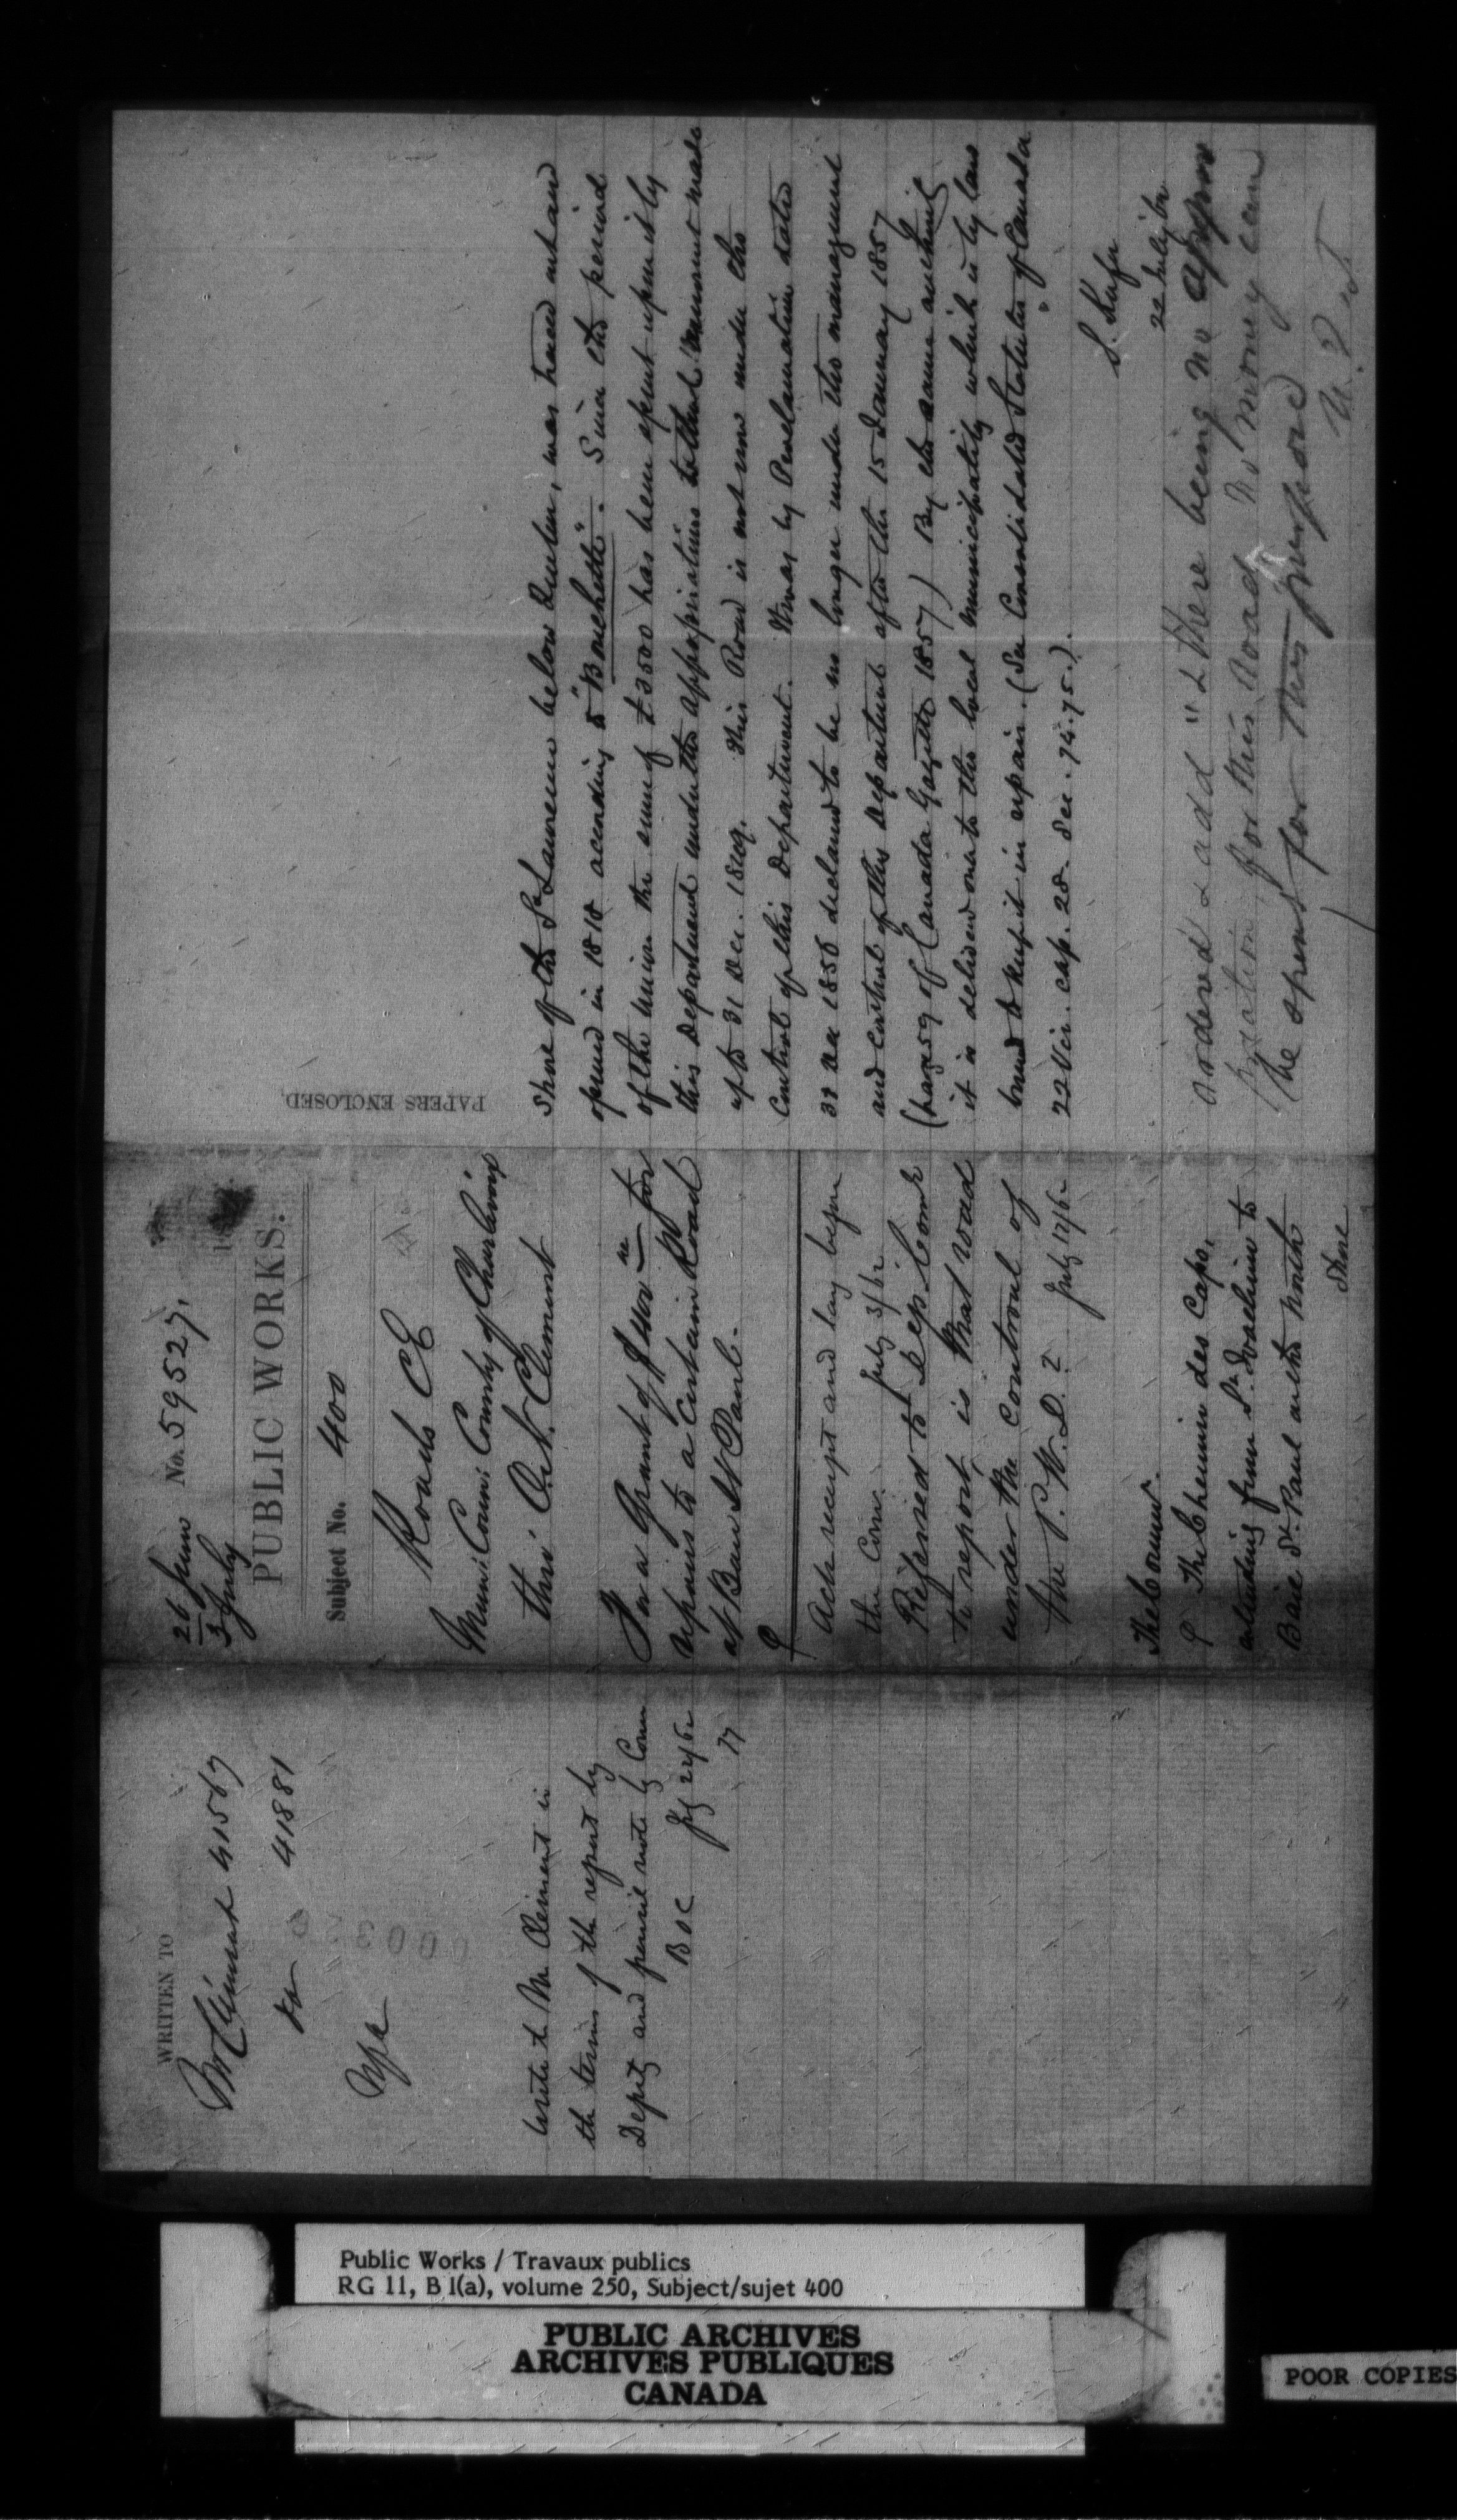 WRITTEN TO
Mr Clément 41567
do 41881
Write to Mr. Clément in
the terms of the report by
Deputy and pencil note by Comr
BOC July 24/62
77
26 June No. 59527.
3 July
PUBLIC WORKS.
Subject No. 400
Roads CE
Munic: Coun: County of Charlevoix
thro' O. A. Clement
For a Grant of for
repairs to a Certain Road
at Baie St Paul.
Ack receipt and lay before
the Com. July 3/62
Referred to Dep. Comr
to report, is that road
under the Controul of
the P.W.D.? July 17/62
The Commr.
The Chemin des Caps,
extending from St. Joachim to
Baie St. Paul on the north
shore
PAPERS ENCLOSED.
Shore of the St Lawrence below Quebec, was traced out and
opened in 1818 according to "Bouchette". Since the period
of the union the sum of £3500 has been spent upon it by
this Department under the appropriations to that amount made
up to 31 Dec. 1849. This Road is not now under the
Control of this Department. It was by Proclamation dated
31 Dec 1856 declared to be no longer under the management
and control of this Department after the 15 January 1857
(page 59 of Canada Gazette 1857) By the same authority
it is delivered over to the local municipality which is by law
bound to keep it in repair. (See Consolidated Statutes of Canada
22 Vic. cap. 28. Sec. 74. 75.).
S. Keefer
22 July /62
ordered & add "& there being no appro
priation for this road no money can
be spent for this purpose